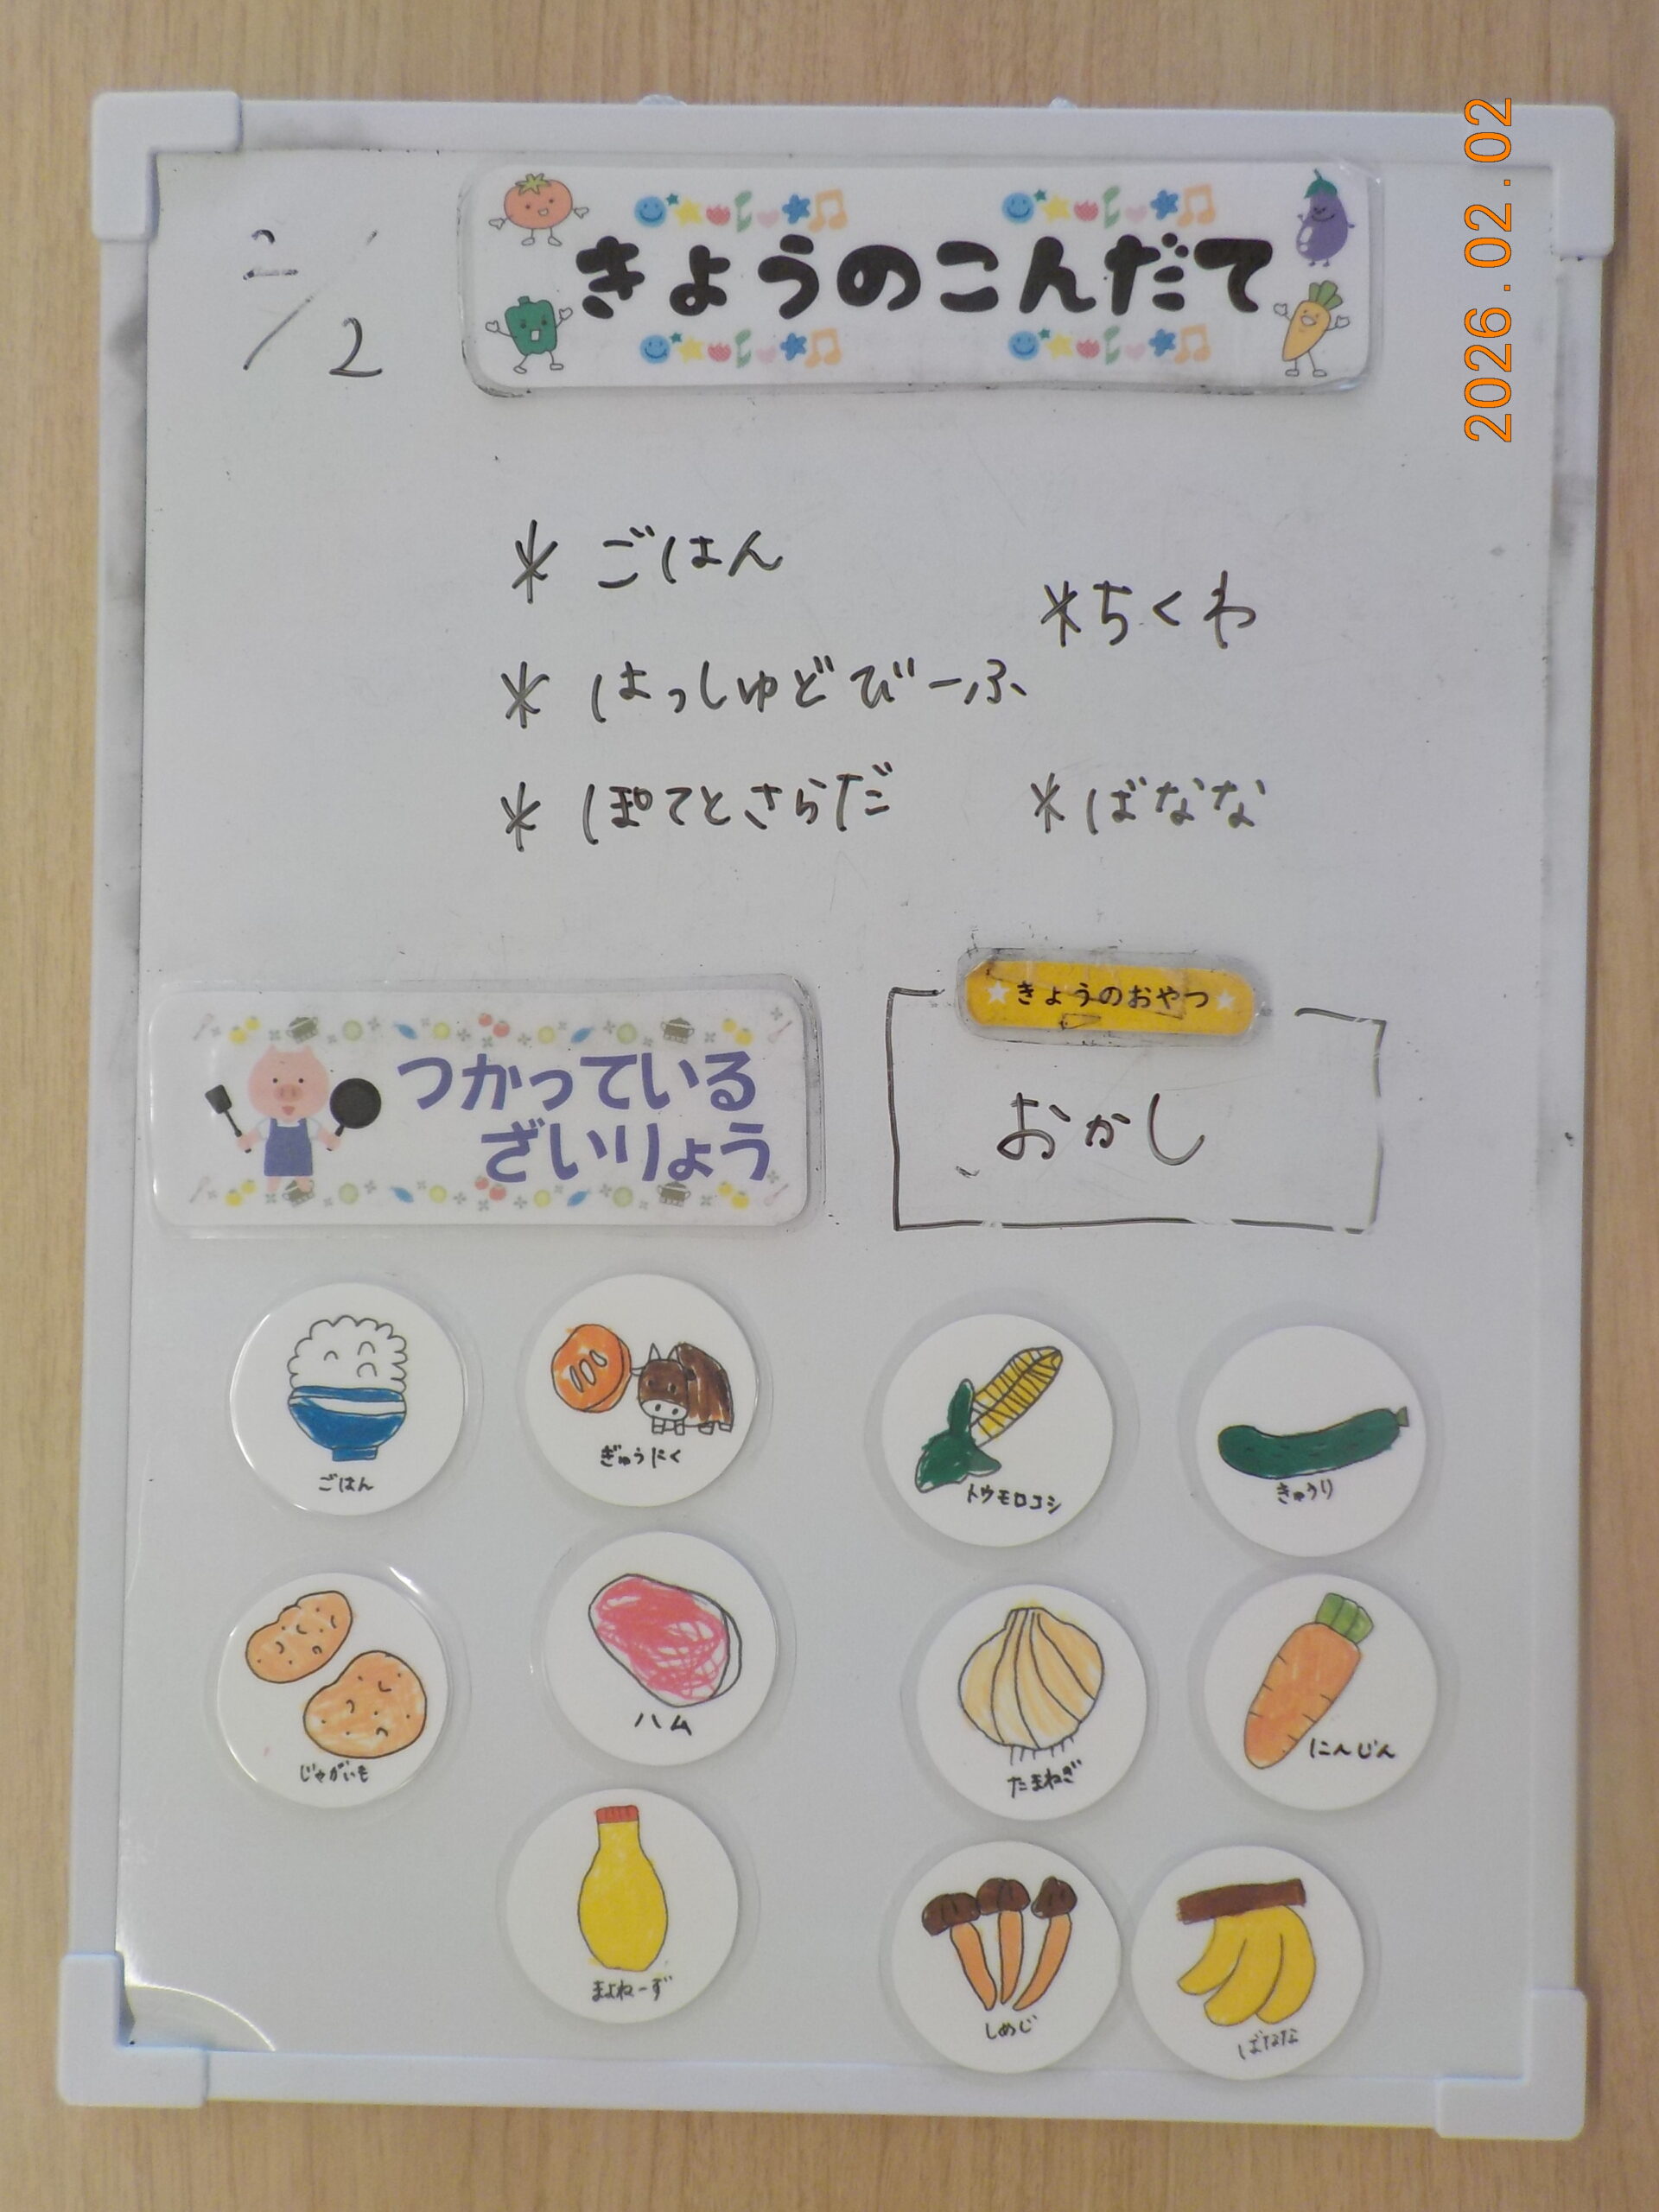 2026.02.02
2/2
きょうのこんだて
* ごはん
* ちくわ
* はっしゅどびーふ
* ぽてとさらだ
* ばなな
きょうのおやつ
おかし
つかっている
ざいりょう
ごはん
ぎゅうにく
トウモロコシ
きゅうり
じゃがいも
ハム
たまねぎ
にんじん
まよねーず
しめじ
ばなな